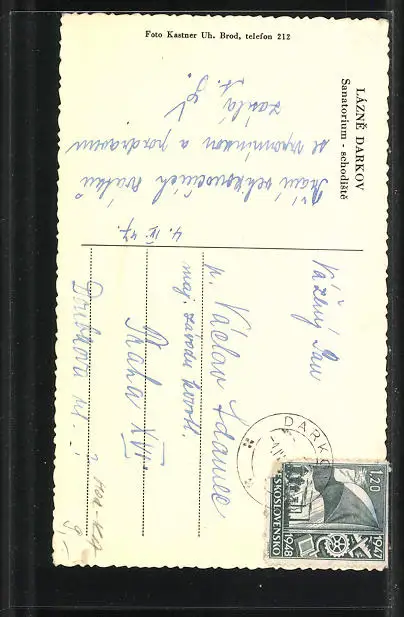 Foto Kastner Uh. Brod, telefon 212
LÁZNĚ DARKOV
Sanatorium - schodiště
4. IV. 47.
Přání velikonočních svátků
se vzpomínkou a pozdravem
zasílá
Vážený Pan
p. Václav Adamec
maj. závodu
Praha XVI.
DARKO
1.20
ČESKOSLOVENSKO
1947
1948